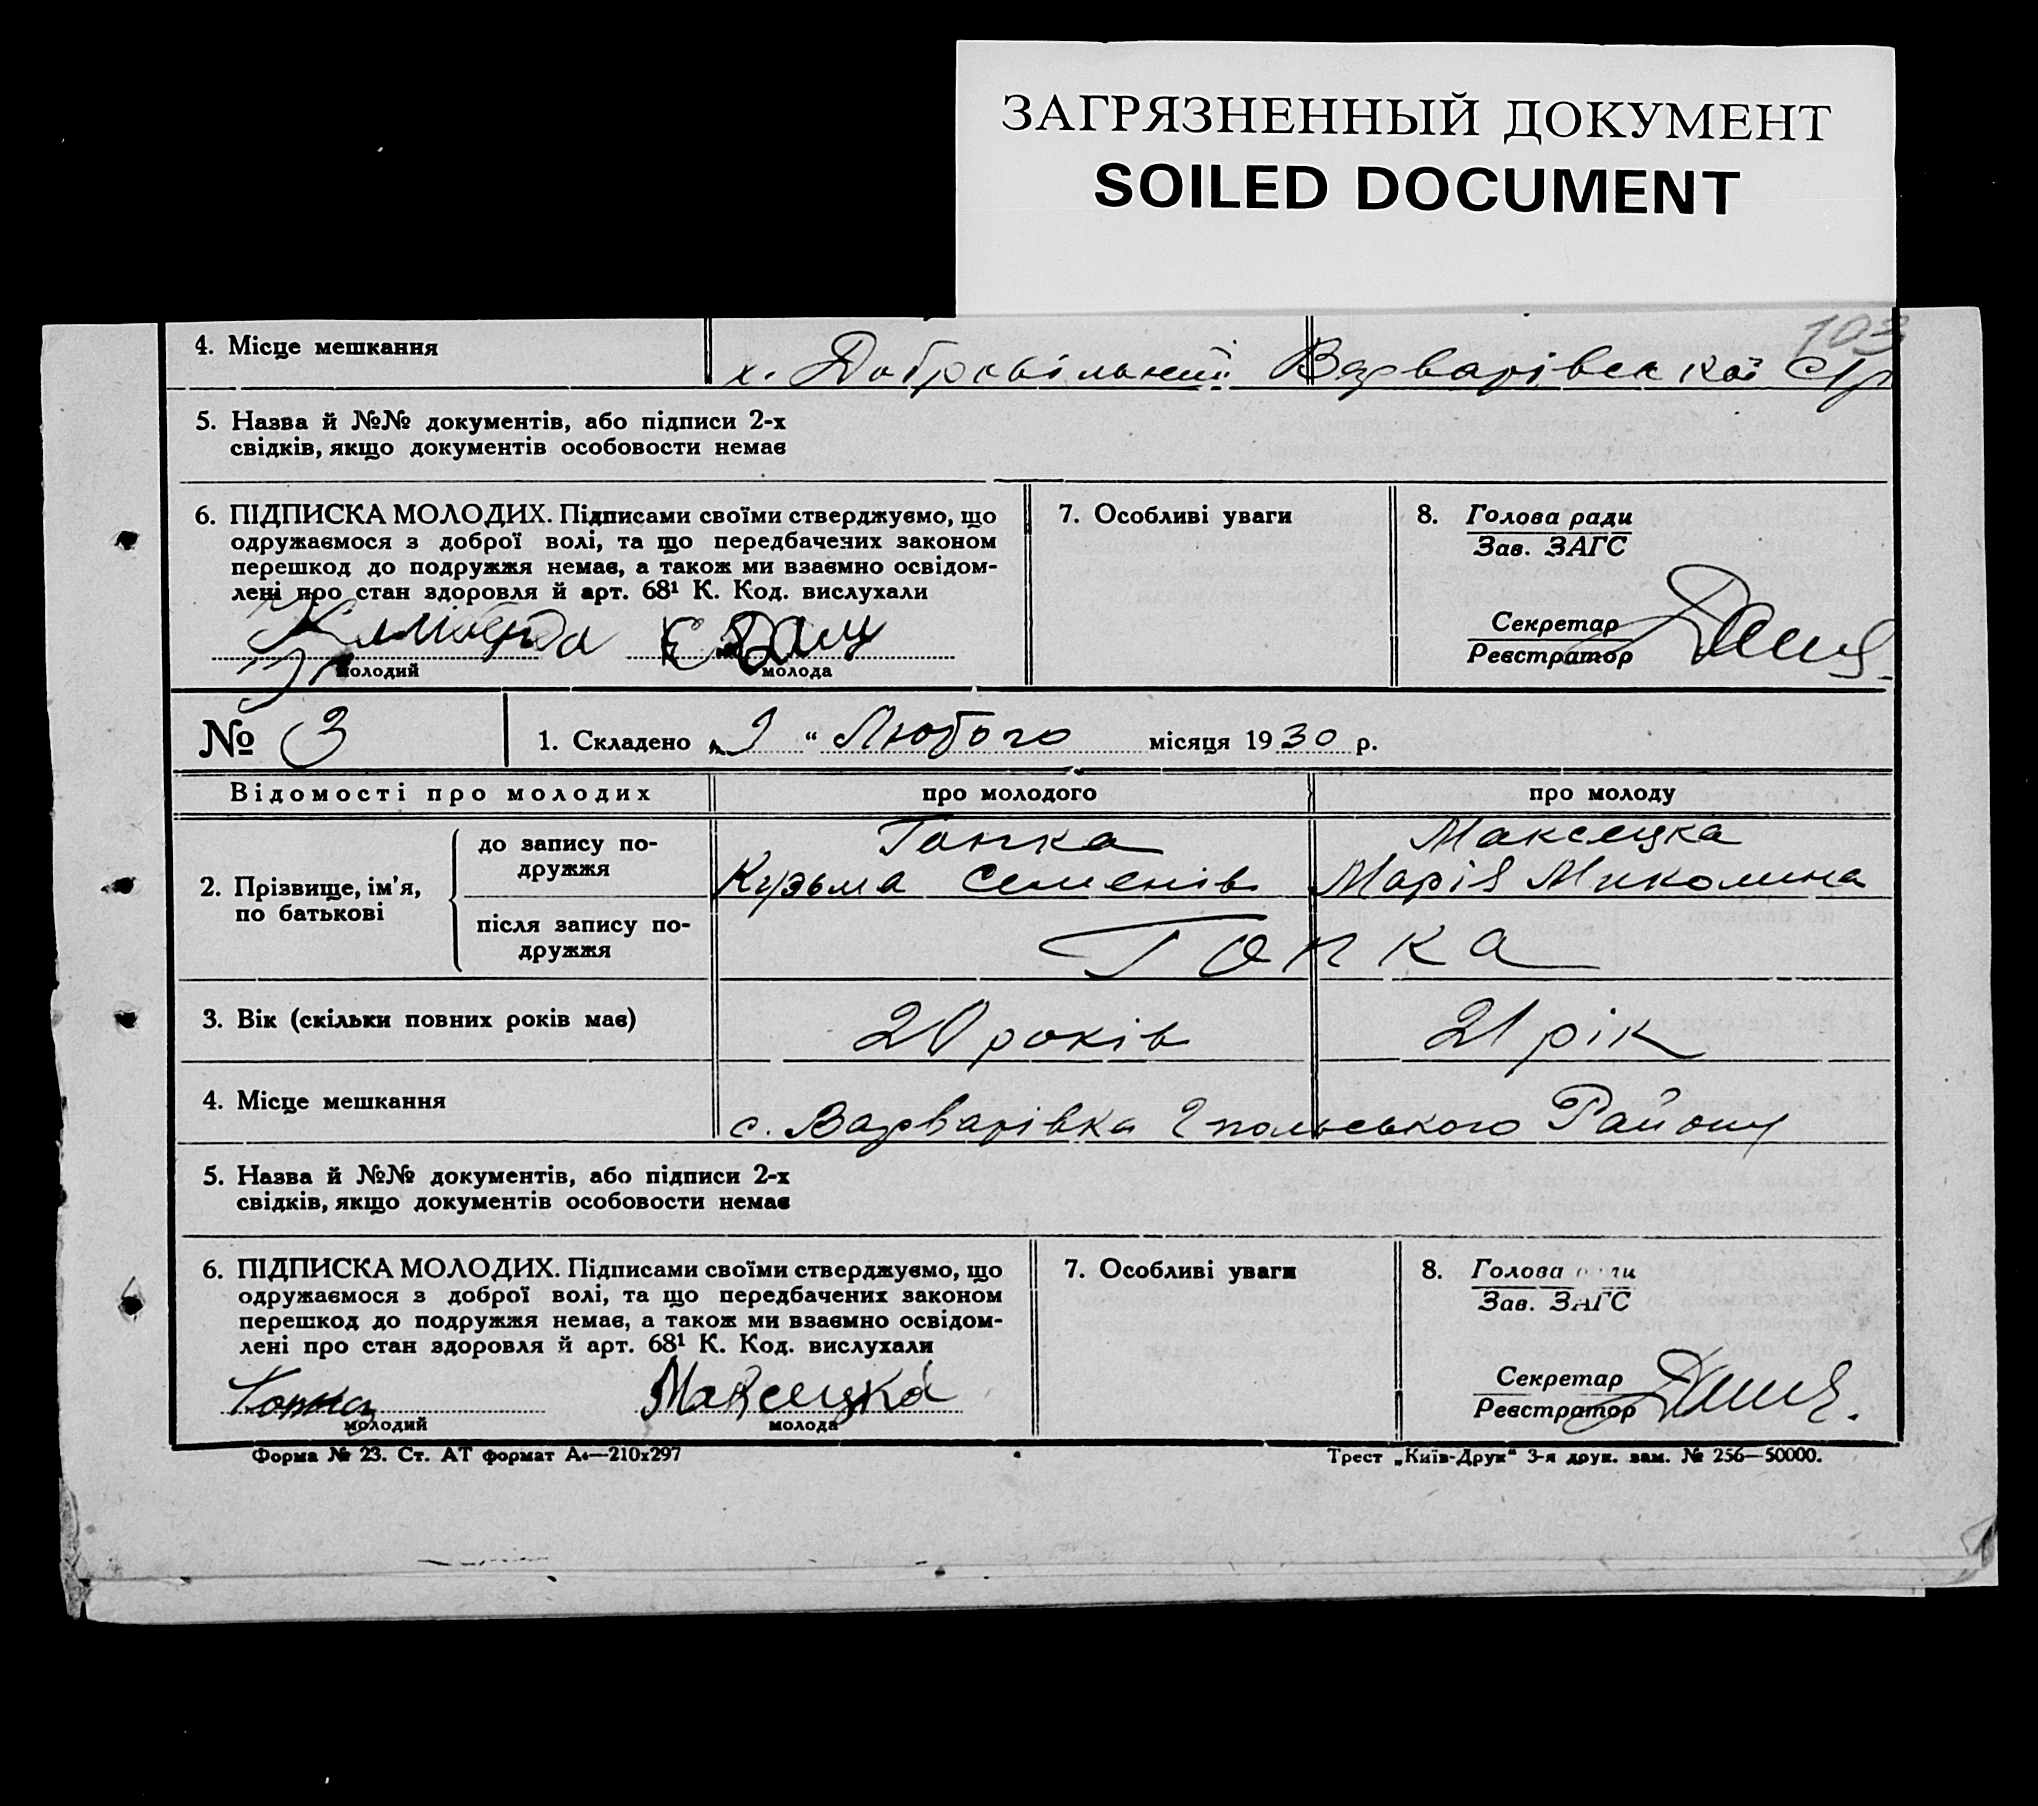 ЗАГРЯЗНЕННЫЙ ДОКУМЕНТ
SOILED DOCUMENT
103
4. Місце мешкання
х. Добровільний Варварівської с/р
5. Назва й №№ документів, або підписи 2-х
свідків, якщо документів особовости немає
6. ПІДПИСКА МОЛОДИХ. Підписами своїми стверджуємо, що
одружаємося з доброї волі, та що передбачених законом
перешкод до подружжя немає, а також ми взаємно освідом-
лені про стан здоровля й арт. 68¹ К. Код. вислухали
молодий
молода
7. Особливі уваги
8. Голова ради
Зав. ЗАГС
Секретар
Реєстратор
№ 3
1. Складено „9“ Лютого місяця 1930 р.
Відомості про молодих
про молодого
про молоду
2. Прізвище, ім'я,
по батькові
до запису по-
дружжя
Гопка
Кузьма Семенів
Максецка
Марія Миколина
після запису по-
дружжя
Гопка
3. Вік (скільки повних років має)
20 років
21 рік
4. Місце мешкання
с. Варварівка Гпольського Району
5. Назва й №№ документів, або підписи 2-х
свідків, якщо документів особовости немає
6. ПІДПИСКА МОЛОДИХ. Підписами своїми стверджуємо, що
одружаємося з доброї волі, та що передбачених законом
перешкод до подружжя немає, а також ми взаємно освідом-
лені про стан здоровля й арт. 68¹ К. Код. вислухали
Гопка
молодий
Максецка
молода
7. Особливі уваги
8. Голова ради
Зав. ЗАГС
Секретар
Реєстратор
Форма № 23. Ст. АТ формат А₄—210х297
Трест „Київ-Друк“ 3-я друк. зам. № 256—50000.